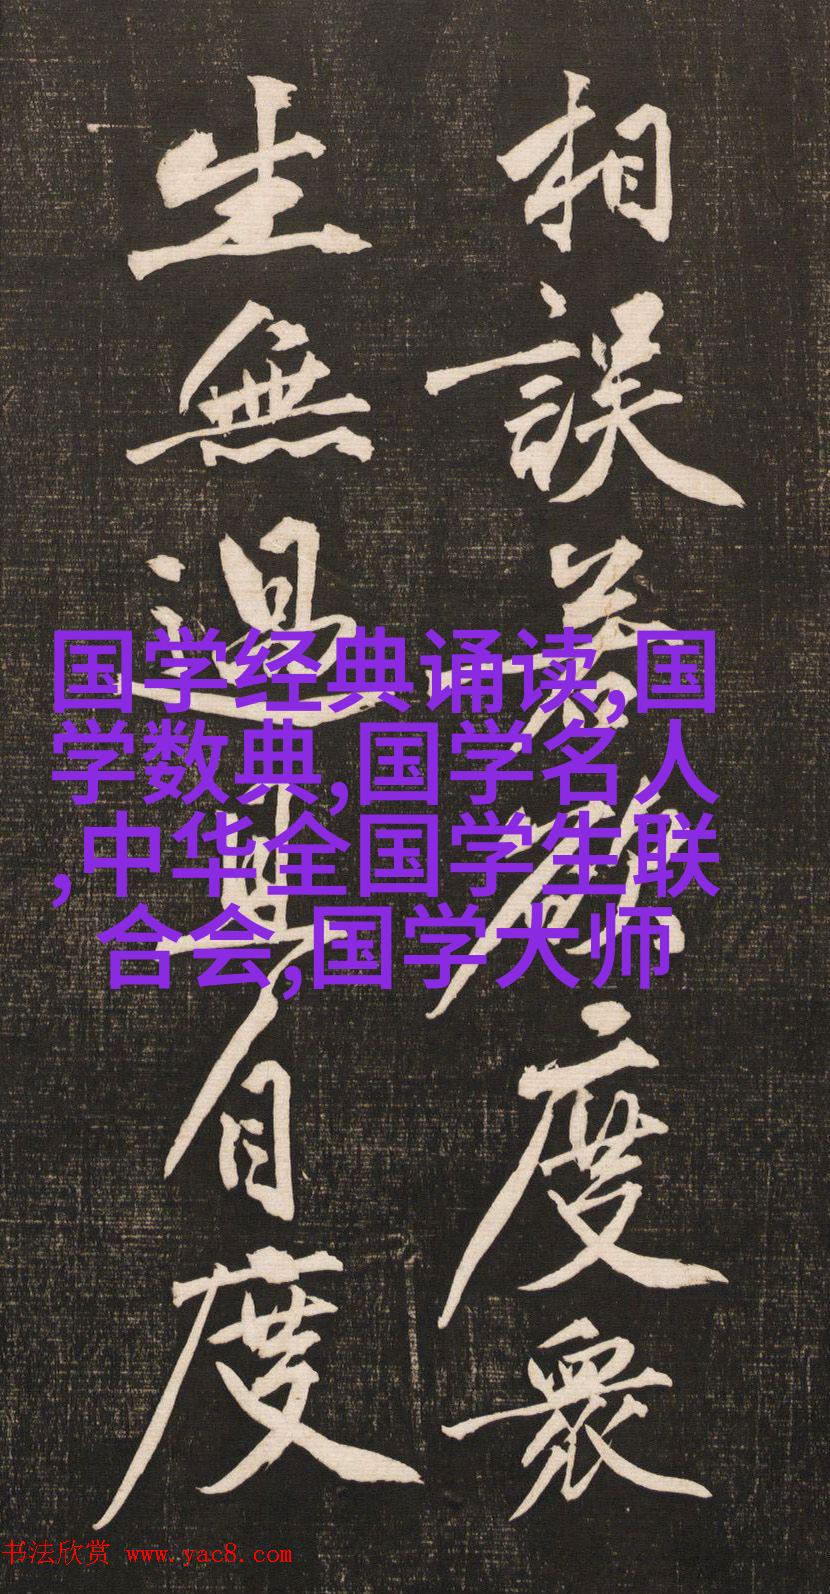 相誤若度眾
生無過且自度
国学经典诵读,国
学数典,国学名人
,中华全国学生联
合会,国学大师
书法欣赏 www.yac8.com